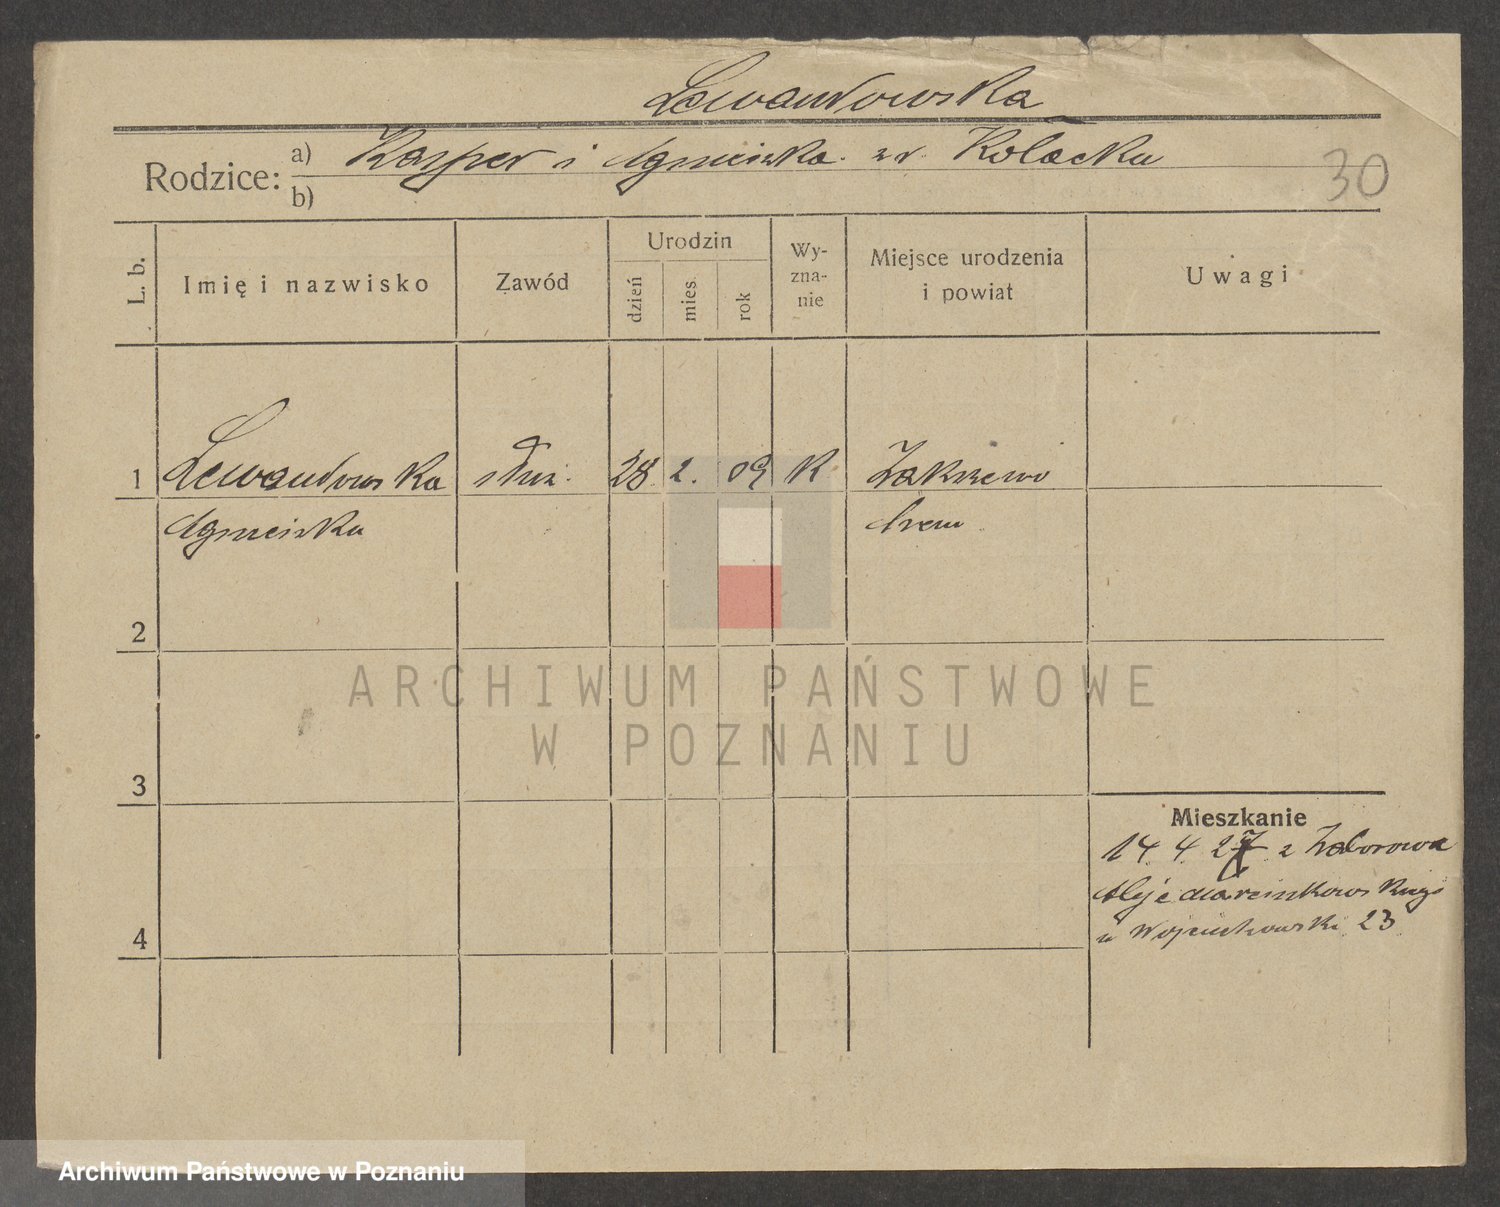 Lewandowska
Rodzice: a) Kasper i Agnieszka zd. Kołacka
b)
30
L. b.
Imię i nazwisko
Zawód
Urodzin
dzień
mies.
rok
Wy-
zna-
nie
Miejsce urodzenia
i powiat
Uwagi
1 Lewandowska służ. 28. 2. 09 K Zakrzewo
Agnieszka Śrem
2
3
4
Mieszkanie
14 4 27 z Zaborowa
Aleje Marcinkowskiego
u Wojciechowski 23
ARCHIWUM PAŃSTWOWE
W POZNANIU
Archiwum Państwowe w Poznaniu